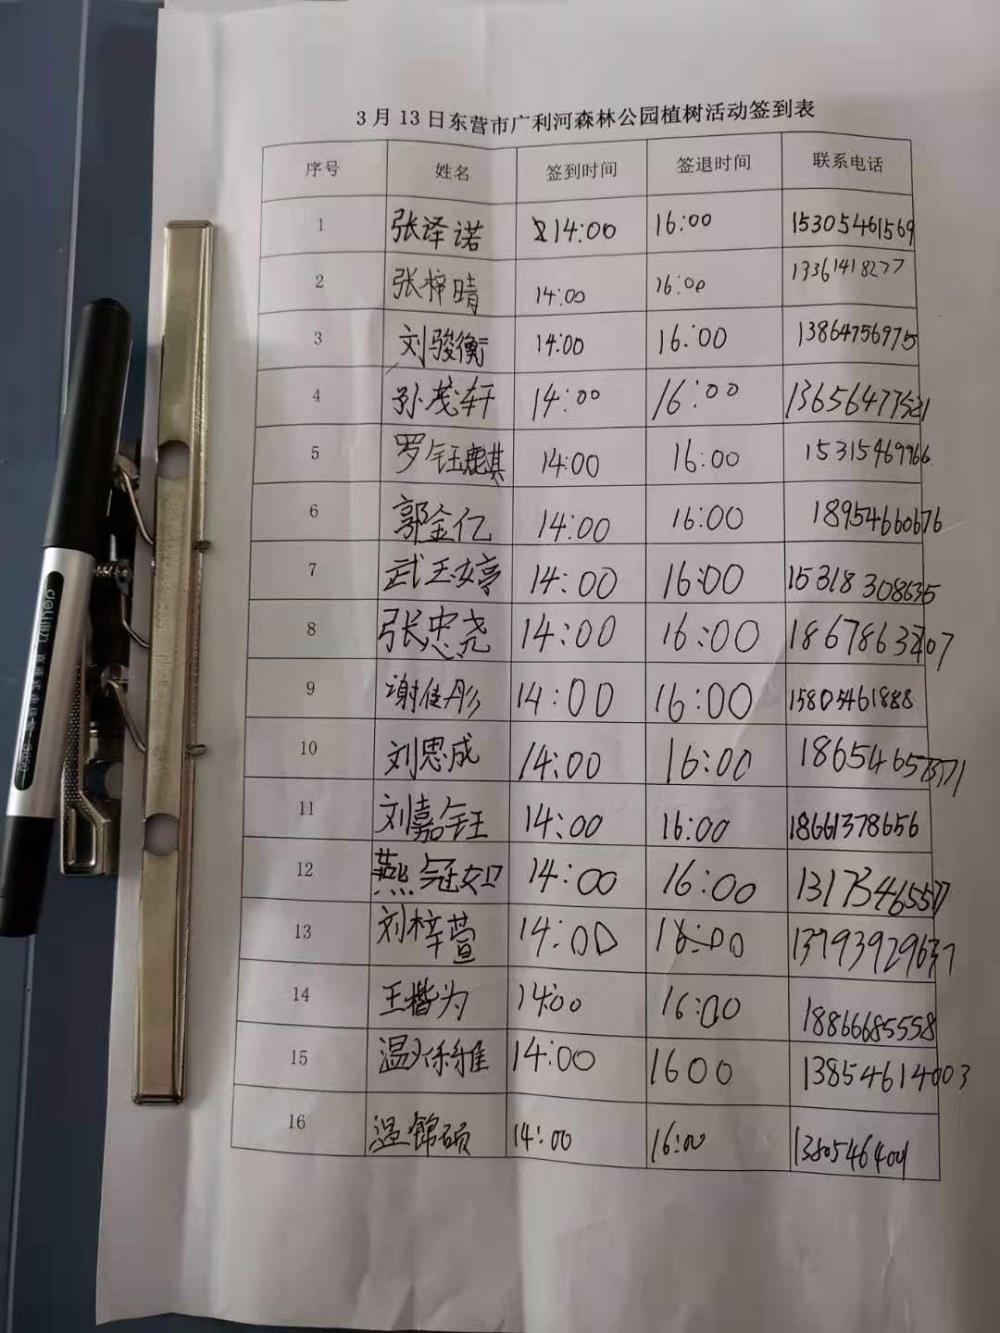 3月13日东营市广利河森林公园植树活动签到表
序号 姓名 签到时间 签退时间 联系电话
1 张泽诺 14:00 16:00 15305461569
2 张梓晴 14:00 16:00 13361418277
3 刘骏衡 14:00 16:00 13864756975
4 孙茂轩 14:00 16:00 13656477521
5 罗钰麒 14:00 16:00 15315469966
6 郭金亿 14:00 16:00 18954660676
7 武玉婷 14:00 16:00 15318308635
8 张忠尧 14:00 16:00
9 谢佳彤 14:00 16:00 15805461888
10 刘思成 14:00 16:00
11 刘嘉钰 14:00 16:00 18661378656
12 燕冠 14:00 16:00
13 刘梓萱 14:00 16:00 13793929637
14 王楷为 14:00 16:00 18866685558
15 温雅 14:00 1600 13854614003
16 温锦硕 14:00 16:00
deli